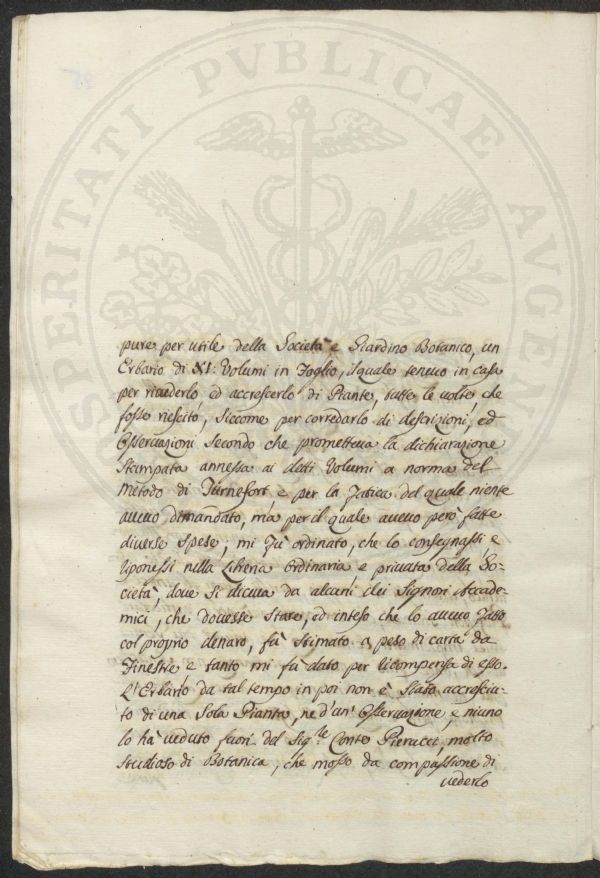 PROSPERITATI PVBLICAE AVGENDAE
pure per utile della Società e Giardino Botanico, un
Erbario di XI: Volumi in Foglio, il quale tenevo in casa
per rivederlo ed accrescerlo di Piante, tutte le volte che
fosse riescito, siccome per corredarlo di descrizioni, ed
Osservazioni secondo che prometteva la dichiarazione
Stampata annessa ai detti Volumi a norma del
metodo di Turnefort e per la fatica del quale niente
avevo dimandato, ma per il quale avevo però fatte
diverse spese; mi fù ordinato, che lo consegnassi e
riponessi nella Libreria ordinaria e privata della So-
cietà, dove si diceva da alcuni dei Signori Accade-
mici, che dovesse stare, ed inteso che lo avevo fatto
col proprio denaro, fù stimato a peso di carta da
Finestre e tanto mi fù dato per ricompensa di esso.
L'Erbario da tal tempo in poi non è stato accresciu-
to di una sola Pianta, ne d'un' Osservazione, e niuno
lo hà veduto fuori del Sig.re Conte Pierucci, molto
studioso di Botanica, che mosso da compassione di
vederlo